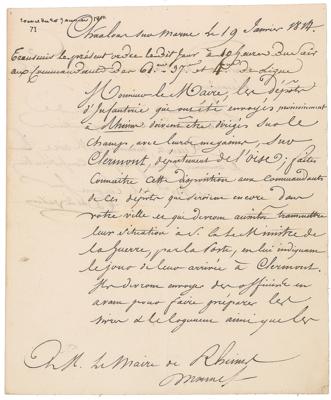 71
Chalons sur Marne le 19 Janvier 1814.
Transmis le présent ordre ledit jour à 10 heures du soir
aux Commandants des 6me 37me et de Ligne
Monsieur le Maire, les Dépôts
d'Infanterie qui ont été envoyés provisoirement
à Rheims doivent être dirigés sur le
champ, avec leurs magasins sur
Clermont, département de l'Oise; faites
connaître cette disposition aux Commandants
de ces dépôts qui seroient encore dans
votre ville et qui devront aussitôt transmettre
leur situation à S. E. le Ministre de
la Guerre, par la Poste, en lui indiquant
le jour de leur arrivée à Clermont.
Ils devront envoyer des officiers en
avant pour faire préparer les
vivres et le logement ainsi que les
A M. le Maire de Rheims